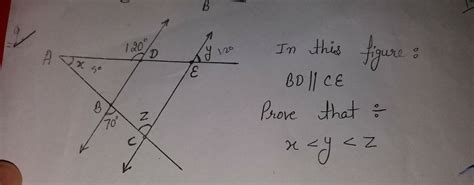 B
9
A
x
120°
D
y
E
B
70°
Z
C
In this figure :
BD || CE
Prove that ÷
x < y < z